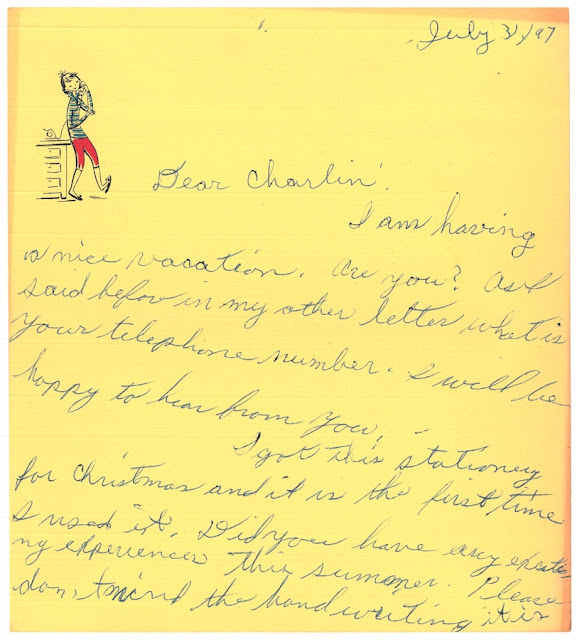 July 31, 97
Dear Charlin'.
I am having
a nice vacation. Are you? As I
said before in my other letter what is
your telephone number. I will be
happy to hear from you.
I got this stationery
for christmas and it is the first time
I used it. Did you have any exciti
ng experiences this summer. Please
don,t mind the handwriting it is